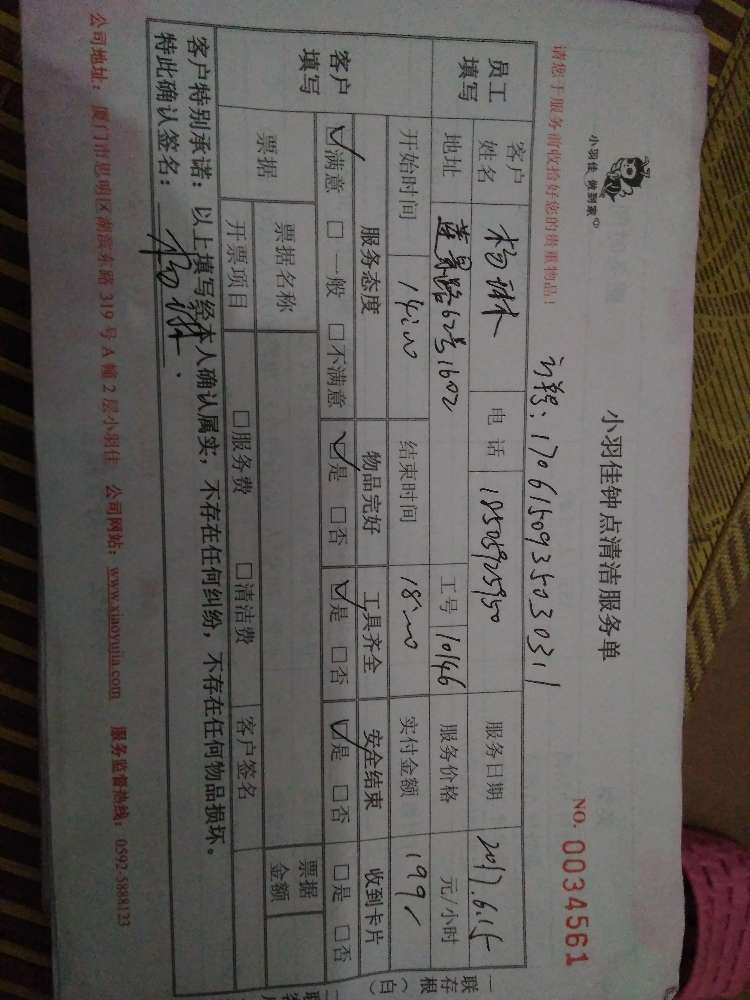 小羽佳 做到家
小羽佳钟点清洁服务单
请您于服务前收拾好您的贵重物品!
NO. 0034561
订单号: 1706150935030311
员工填写
客户姓名 杨琳 电话 18505925950 服务日期 2017.6.15
地址 莲景路62号1602 工号 10146 服务价格 元/小时
开始时间 14:00 结束时间 18:00 实付金额 199
客户填写
服务态度 物品完好 工具齐全 安全结束 收到卡片
☑满意 □一般 □不满意 ☑是 □否 ☑是 □否 ☑是 □否 □是 □否
票据 票据名称 票据金额
开票项目 □服务费 □清洁费 客户签名
客户特别承诺: 以上填写经本人确认属实, 不存在任何纠纷, 不存在任何物品损坏。
特此确认签名: 杨琳
公司地址: 厦门市思明区湖滨东路 319 号 A 幢 2 层小羽佳 公司网站: www.xiaoyujia.com 服务监督热线: 0592-5888123
一联存根(白)